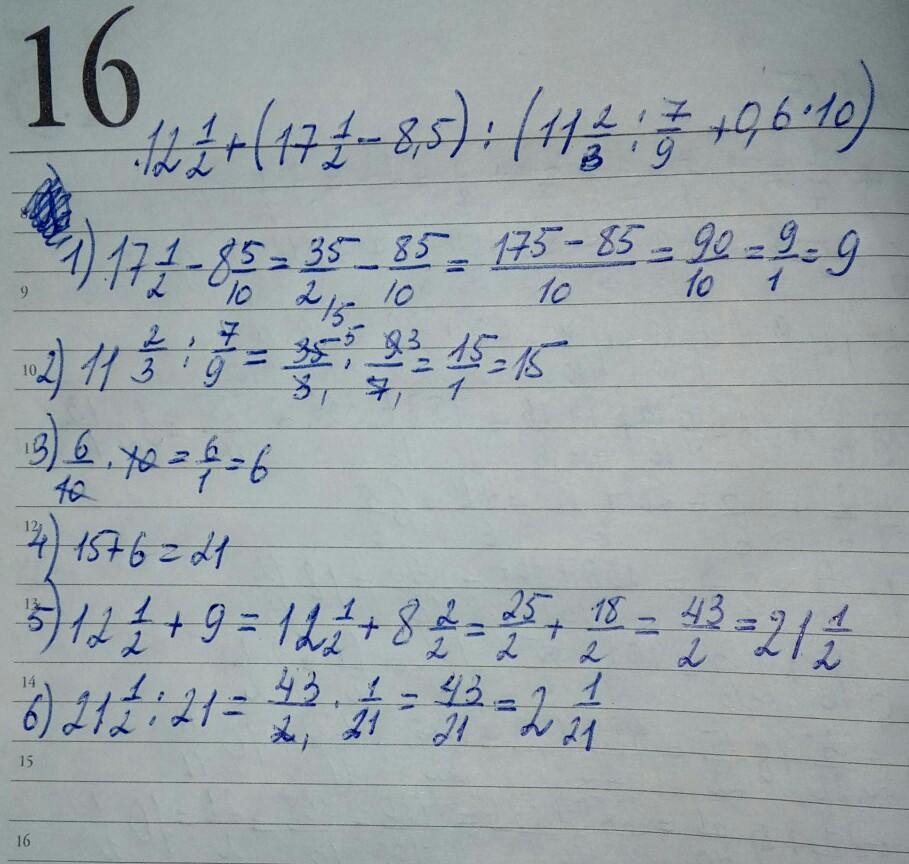 16
12 1/2 + (17 1/2 - 8,5) : (11 2/3 : 7/9 + 0,6 · 10)
1) 17 1/2 - 8 5/10 = 35/2 - 85/10 = (175 - 85)/10 = 90/10 = 9/1 = 9
9
10
2) 11 2/3 : 7/9 = 35/3 · 9/7 = 15/1 = 15
3) 6/10 · 10 = 6/1 = 6
12
4) 15 + 6 = 21
13
5) 12 1/2 + 9 = 12 1/2 + 8 2/2 = 25/2 + 18/2 = 43/2 = 21 1/2
14
6) 21 1/2 : 21 = 43/2 · 1/21 = 43/21 = 2 1/21
15
16